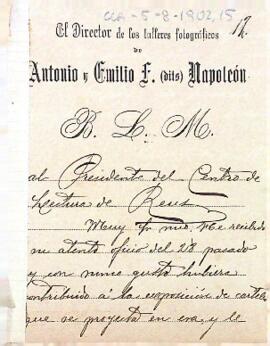 CCA-5-8-1902,15
12.
El Director de los talleres fotográficos
de
Antonio y Emilio F. (dits) Napoleón
B. L. M.
al Presidente del Centro de
Lectura de Reus
Muy Sr. mio: He recibido
su atento oficio del 28 pasado
y con sumo gusto hubiera
contribuido á la exposicion de cartels
que se proyecta en esa, y le